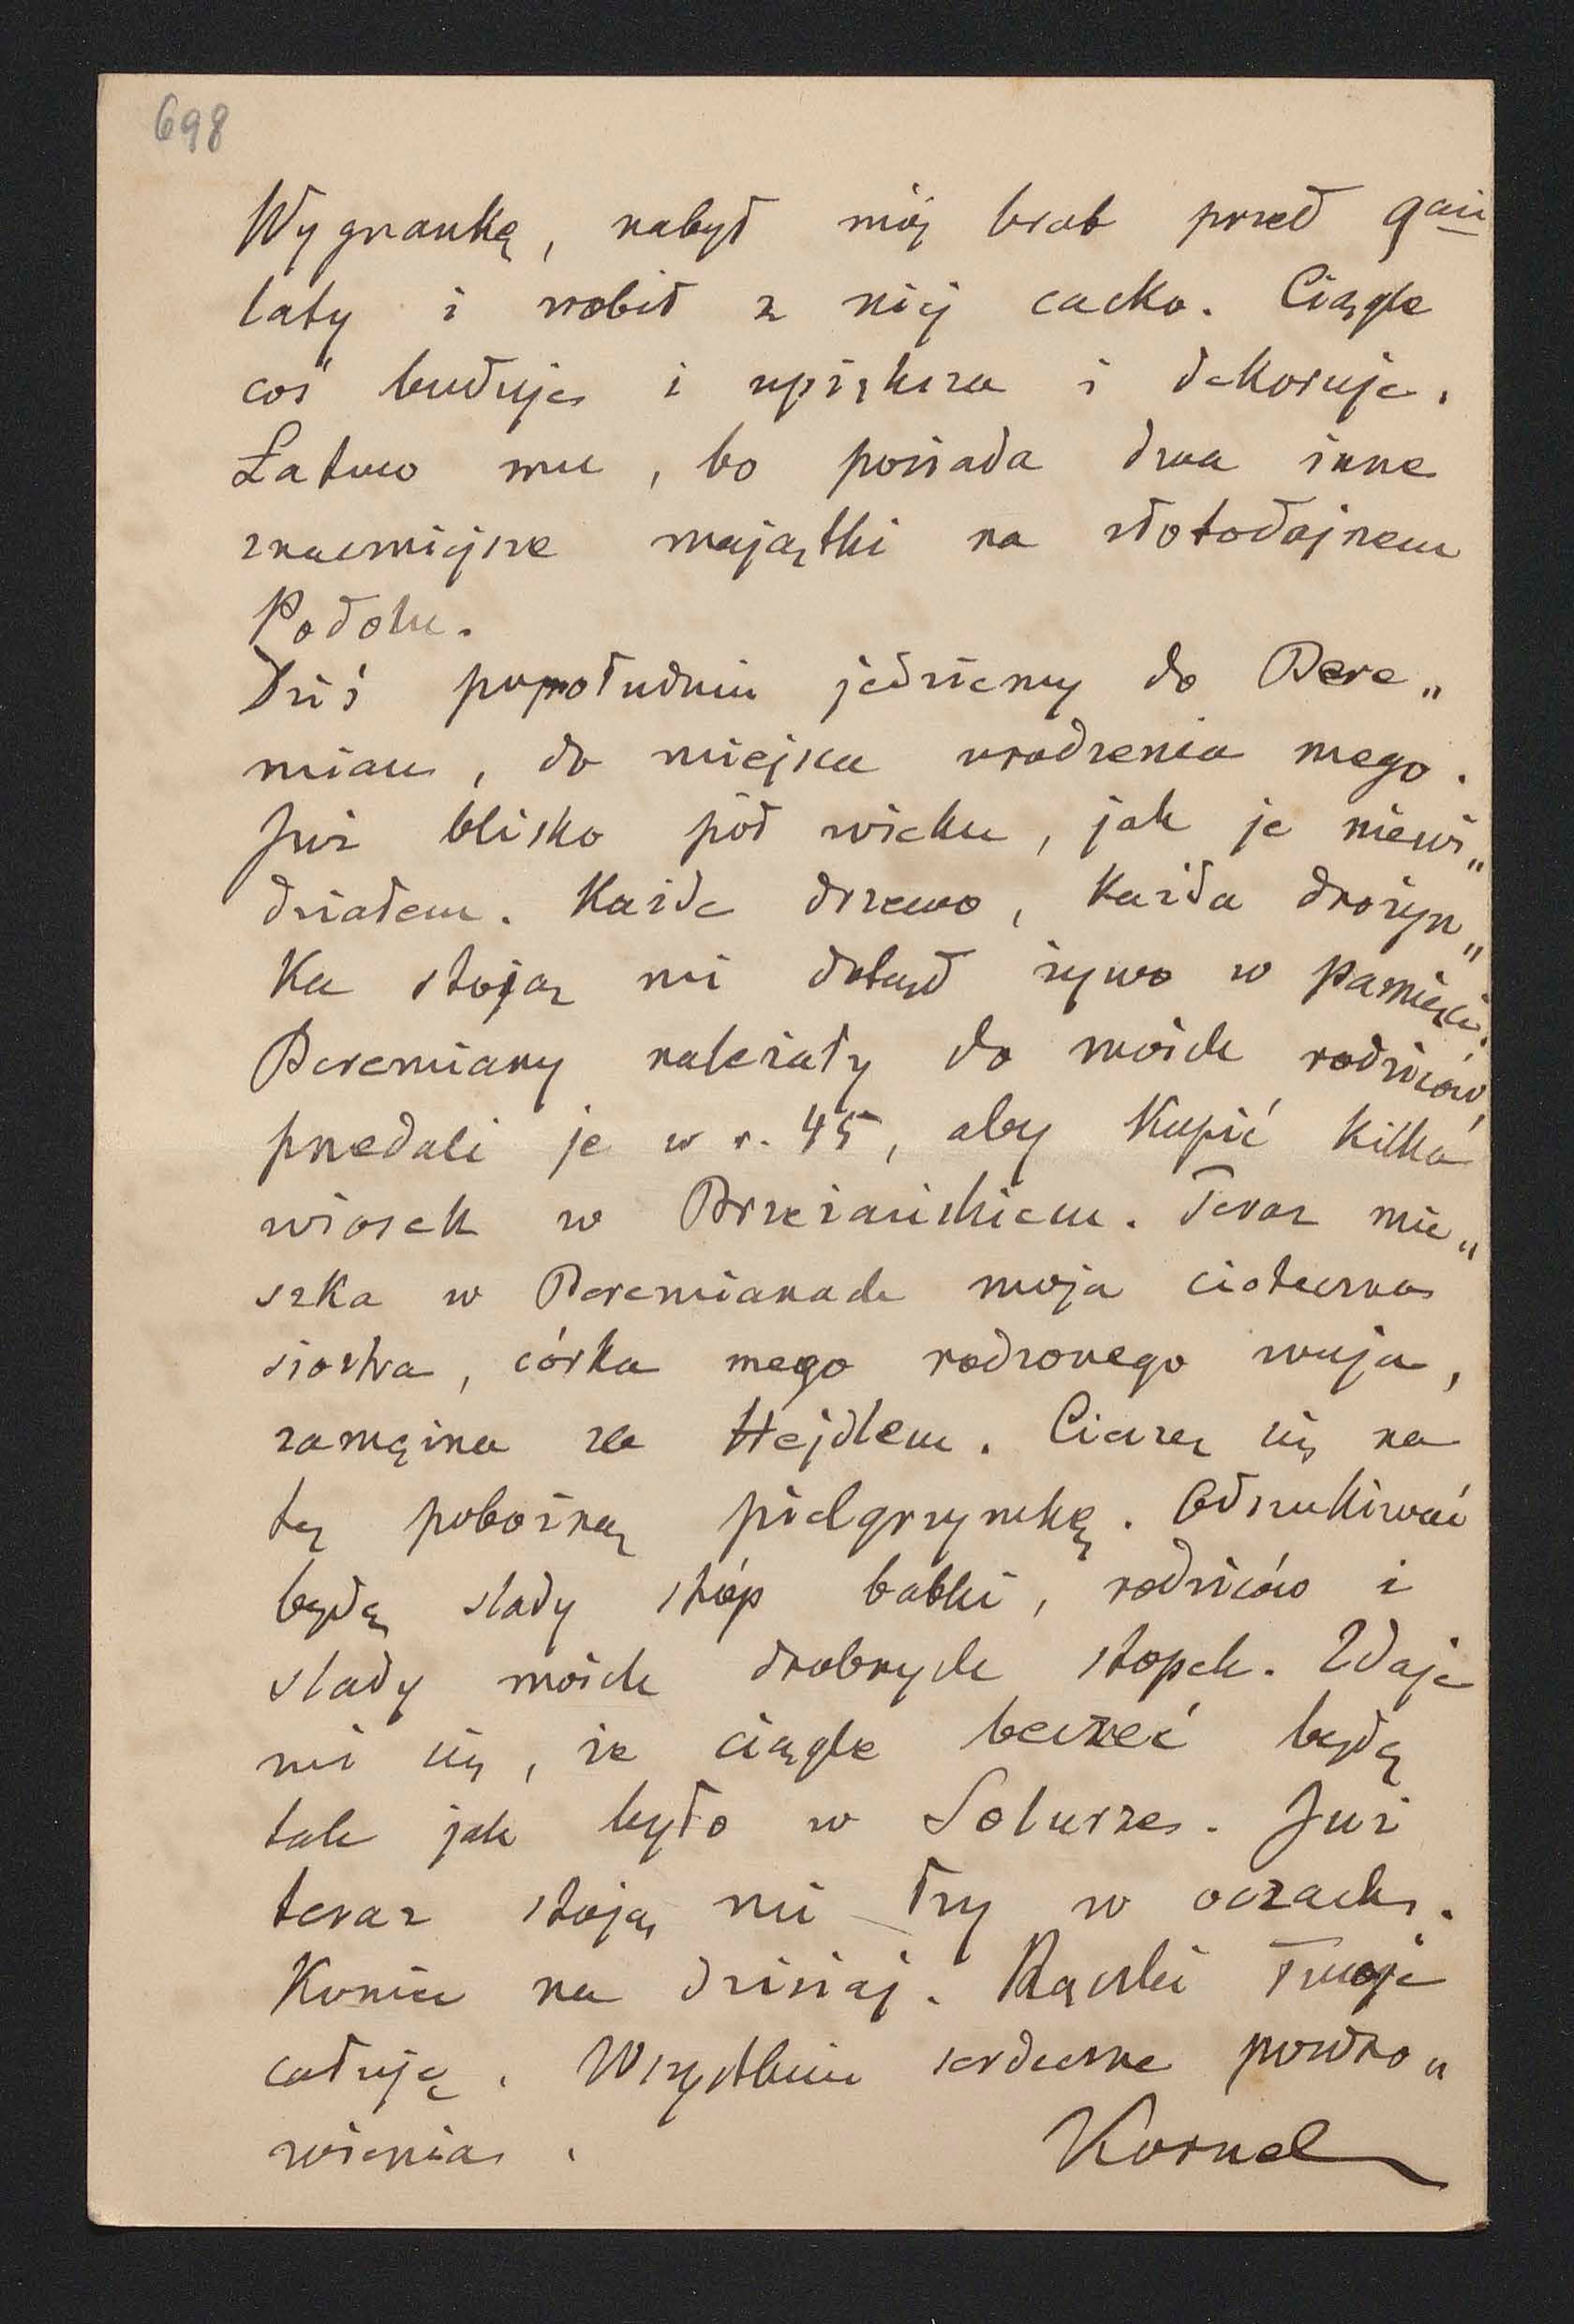 698
Wygnankę, nabył mój brat przed 9ciu
laty i zrobił z niej cacko. Ciągle
coś buduje i upiększa i dekoruje.
Łatwo mu, bo posiada dwa inne
znaczniejsze majątki na złotodajnem
Podolu.
Dziś popołudniu jedziemy do Bere„
mian, do miejsca urodzenia mego.
Już blisko pół wieku, jak je niewi„
działem. Każde drzewo, każda drożyn„
ka stoją mi dotąd żywo w pamięci.
Beremiany należały do moich rodziców,
przedali je w r. 45, aby kupić kilka
wiosek w Brzeżańskiem. Teraz mie„
szka w Beremianach moja cioteczna
siostra, córka mego rodzonego wuja,
zamężna za Hejdlem. Cieszę się na
tę pobożną pielgrzymkę. Odszukiwać
będę slady stóp babki, rodziców i
slady moich drobnych stopek. Zdaje
mi się, że ciągle beczeć będę
tak jak było w Solurze. Już
teraz stoją mi łzy w oczach.
Koniec na dzisiaj. Rączki Twoje
całuję. Wszystkim serdeczne pozdro„
wienia.
Kornel